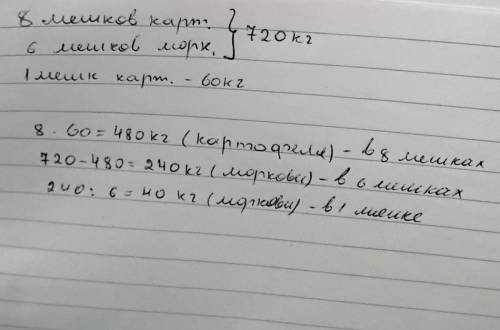 8 мешков карт. } 720 кг
6 мешков морк.
1 мешк карт. - 60кг
8 · 60 = 480 кг (картофеля) - в 8 мешках
720 - 480 = 240 кг (моркови) - в 6 мешках
240 : 6 = 40 кг (моркови) - в 1 мешке